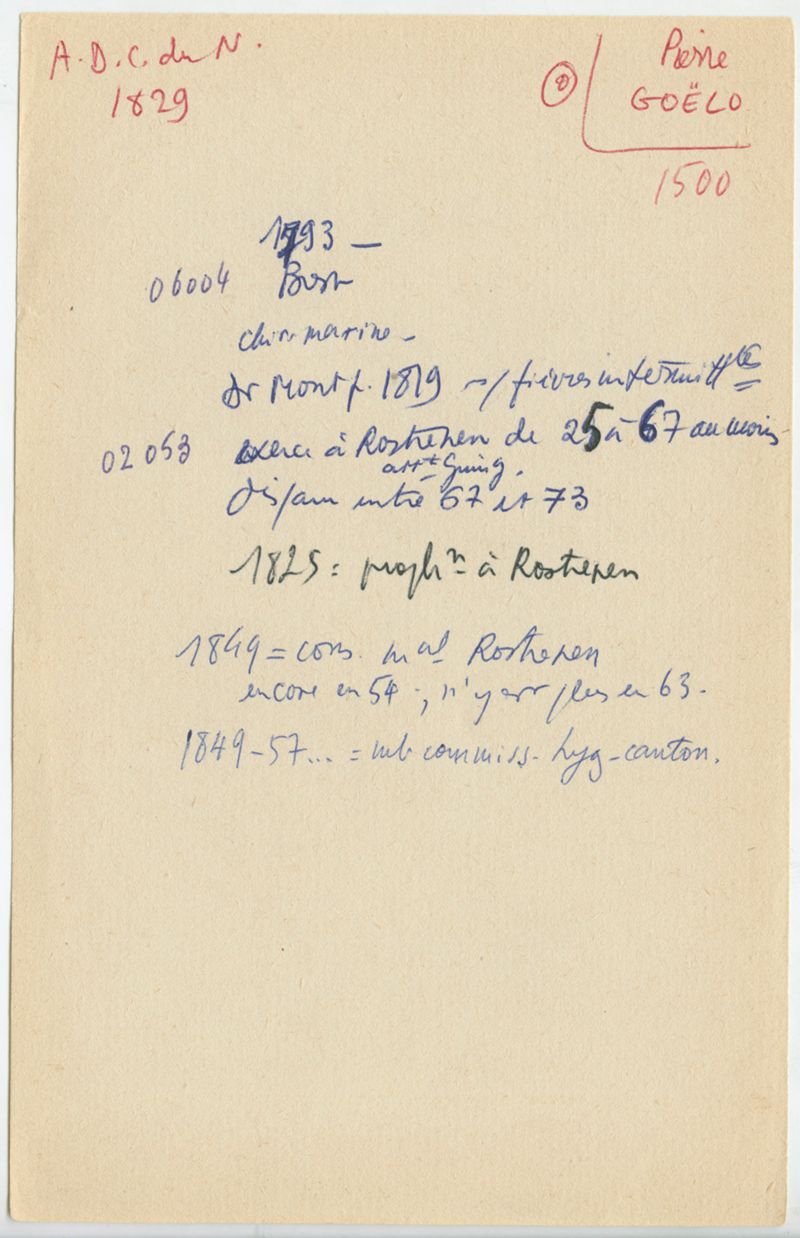 A.D.C. du N.
1829
Pierre
GOËLO
1500
1793 —
06004 Brest
chir. marine -
Dr Montp. 1819 s/ fièvres intermittt​es
02053 exerce à Rostrenen de 25 à 67 au moins
arrt Guing.
dispau entre 67 et 73
1825 = prophn à Rostrenen
1849 = cons. mal Rostrenen
encore en 54 ; n'y est plus en 63.
1849-57... = mb commiss. hyg. canton.